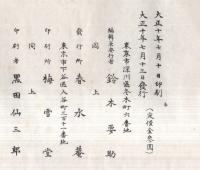 大正十年七月十日印刷
大正十年七月十三日發行
(定價金壱圓)
東京市深川區冬木町六番地
編輯兼發行者 鈴木要助
同上
發行所 春水庵
東京市下谷區入谷町三百十一番地
印刷所 梅雪堂
同上
印刷者 黒田仙三郎